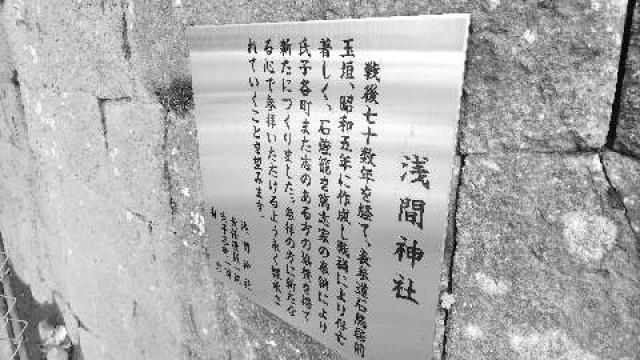 浅間神社
戦後七十数年を経て、表参道石鳥居前
玉垣、昭和五年に作成し戦禍により
著しく、石燈籠を篤志家の奉納により
氏子各町また志のある方の協賛を得て
新たにつくりました。参拝の方に新たな
る心で参拝いただけるよう永く継承さ
れていくことを望みます。
浅間神社